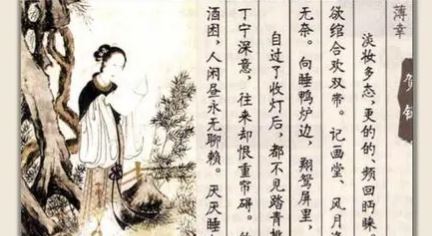 薄幸
贺
淡妆多态,更的的、频回眄睐
欲绾合欢双带。记画堂、风月
无奈。向睡鸭炉边,翔鸳屏里,
自过了收灯后,都不见踏青挑
丁宁深意,往来却恨重帘碍。
酒困,人闲昼永无聊赖。厌厌睡